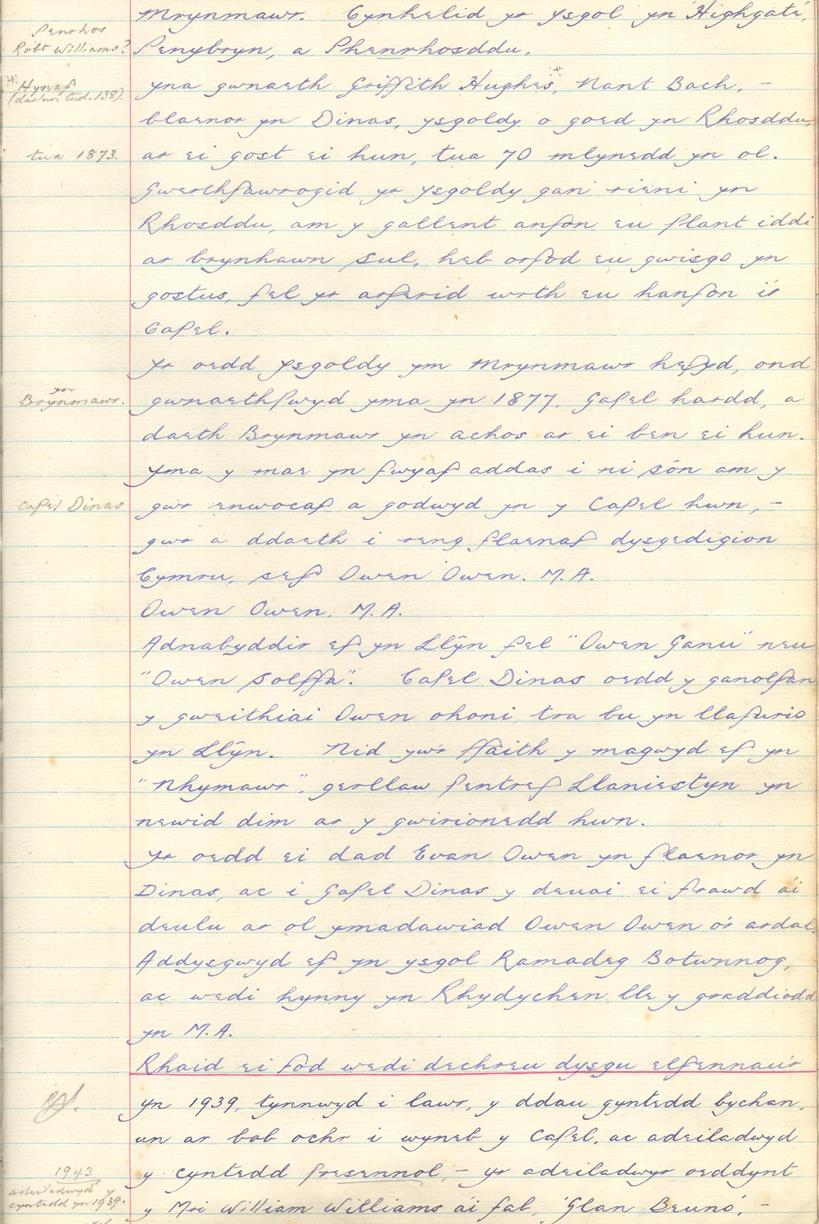 Mrynmawr. Cynhelid yr ysgol yn 'Highgate',
Penrhos
Robt Williams?
Penybryn, a Phenrhosddu.
* Hynaf
yna gwnaeth Griffith Hughes*, Nant Bach, –
blaenor yn Dinas, ysgoldy o goed yn Rhosddu,
tua 1873.
ar ei gost ei hun, tua 70 mlynedd yn ol.
Gwerthfawrogid yr ysgoldy gan rieni yn
Rhosddu, am y gallent anfon eu plant iddi
ar brynhawn Sul, heb orfod eu gwisgo yn
gostus, fel yr arferid wrth eu hanfon i'r
Capel.
Yr oedd Ysgoldy ym Mrynmawr hefyd, ond
yn
Brynmawr.
gwnaethpwyd yma yn 1877, Gapel hardd, a
daeth Brynmawr yn achos ar ei ben ei hun.
Yma y mae yn fwyaf addas i ni sôn am y
capel Dinas
gwr enwocaf a godwyd yn y Capel hwn, –
gwr a ddaeth i reng flaenaf dysgedigion
Cymru, sef Owen Owen. M.A.
Owen Owen. M.A.
Adnabyddir ef yn Llŷn fel "Owen Ganu" neu
"Owen Solffa". Capel Dinas oedd y ganolfan
y gweithiai Owen ohoni tra bu yn llafurio
yn Llŷn. Nid yw'r ffaith y magwyd ef yn
"Nhymawr", gerllaw pentref Llaniestyn yn
newid dim ar y gwirionedd hwn.
Yr oedd ei dad Evan Owen yn flaenor yn
Dinas, ac i Gapel Dinas y deuai ei frawd a'i
deulu ar ol ymadawiad Owen Owen o'r ardal.
Addysgwyd ef yn ysgol Ramadeg Botwnnog,
ac wedi hynny yn Rhydychen lle y graddiodd
yn M.A.
Rhaid ei fod wedi dechreu dysgu elfennau'r
yn 1939, tynnwyd i lawr, y ddau gyntedd bychan,
un ar bob ochr i wyneb y Capel, ac adeiladwyd
1943
adeiladwyd y
cyntedd yn 1939.
y cyntedd presennol, – yr adeiladwyr oeddynt
y Mri William Williams a'i fab, 'Glan Beuno', –